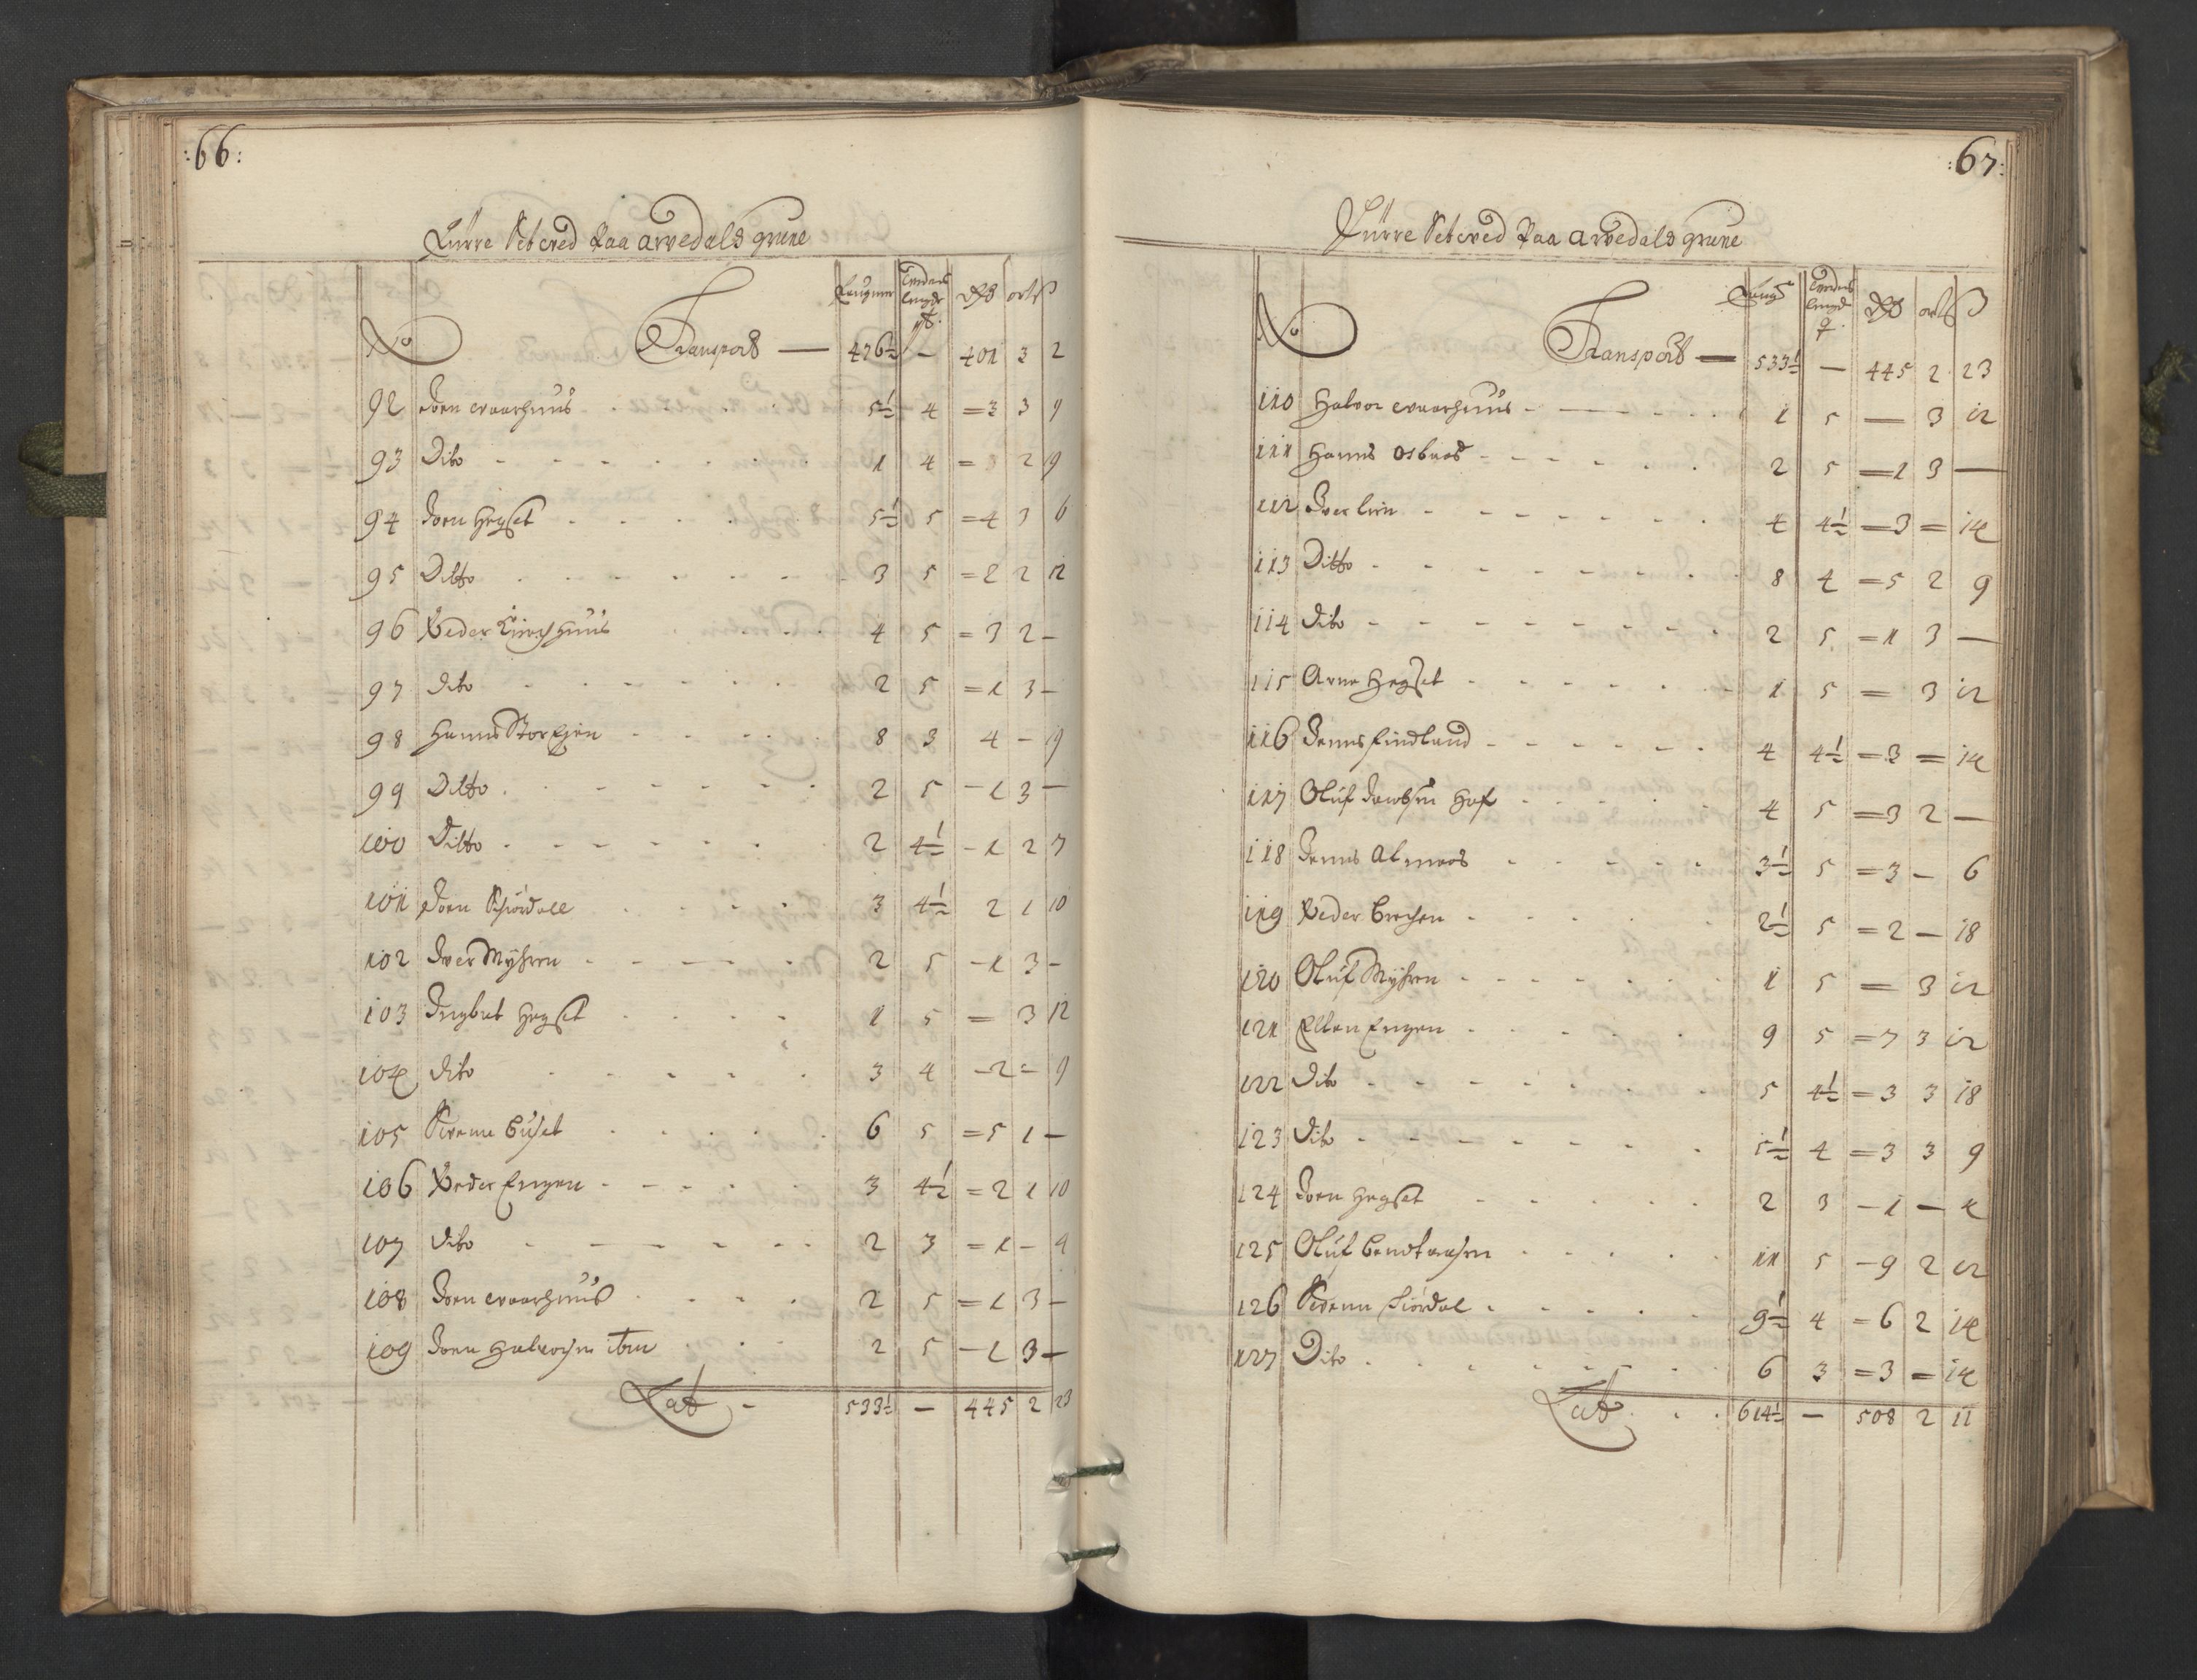 :66:
Kurre Setved Paa arvedals grune
Laugner Vedens lengde qt. Rdr ort ß
No Transport — 476½ — 401 3 2
92 Joen evaarhuus 5½ 4 = 3 3 9
93 Dito 1 4 = 2 9
94 Joen Hegset 5½ 5 = 4 3 6
95 Ditto 3 5 = 2 2 12
96 Peder Kirchhuus 4 5 = 3 2 –
97 dito 2 5 = 1 3 –
98 Hanns Storeien 8 3 4 – 19
99 Ditto 2 5 – 1 3 –
100 Ditto 2 4½ – 1 2 7
101 Joen Schiordall 3 4½ 2 1 10
102 Iver Myhren 2 5 – 1 3 –
103 Ingbret Hegset 1 5 = 3 12
104 dito 3 4 – 2 = 9
105 Svenne Buset 6 5 = 5 1 –
106 Peder Engen 3 4½ = 2 1 10
107 dito 2 3 = 1 – 4
108 Joen evaarhuus 2 5 = 1 3 –
109 Joen Halvorsen ibm 2 5 – 1 3 –
Lat – 533½ – 445 2 23
:67:
Kurre Setved Paa arvedals grune
Laugr Vedens lengde q. Rdr ort ß
No Transport — 533½ — 445 2 23
110 Halvor evaarhuus 1 5 — 3 12
111 Hanns Osbaes 2 5 = 1 3 —
112 Iver lien 4 4½ = 3 = 14
113 Ditto 8 4 = 5 2 9
114 dito 2 5 = 1 3 —
115 Arne Hegset 1 5 = 3 12
116 Jenns Findland 4 4½ = 3 = 14
117 Oluf Jacobsen Hof 4 5 = 3 2 —
118 Jenns Almaas 3½ 5 = 3 – 6
119 Peder Erichsen 2½ 5 = 2 – 18
120 Oluf Myhren 1 5 = 3 12
121 Ellen Engen 9 5 = 7 3 12
122 dito 5 4½ = 3 3 18
123 dito 5½ 4 = 3 3 9
124 Joen Hegset 2 3 – 1 – 4
125 Oluf Bendtaasen 11 5 – 9 2 12
126 Svenn Siordal 9½ 4 = 6 2 14
127 Dito 6 3 = 3 = 14
Lat 614½ – 508 2 11